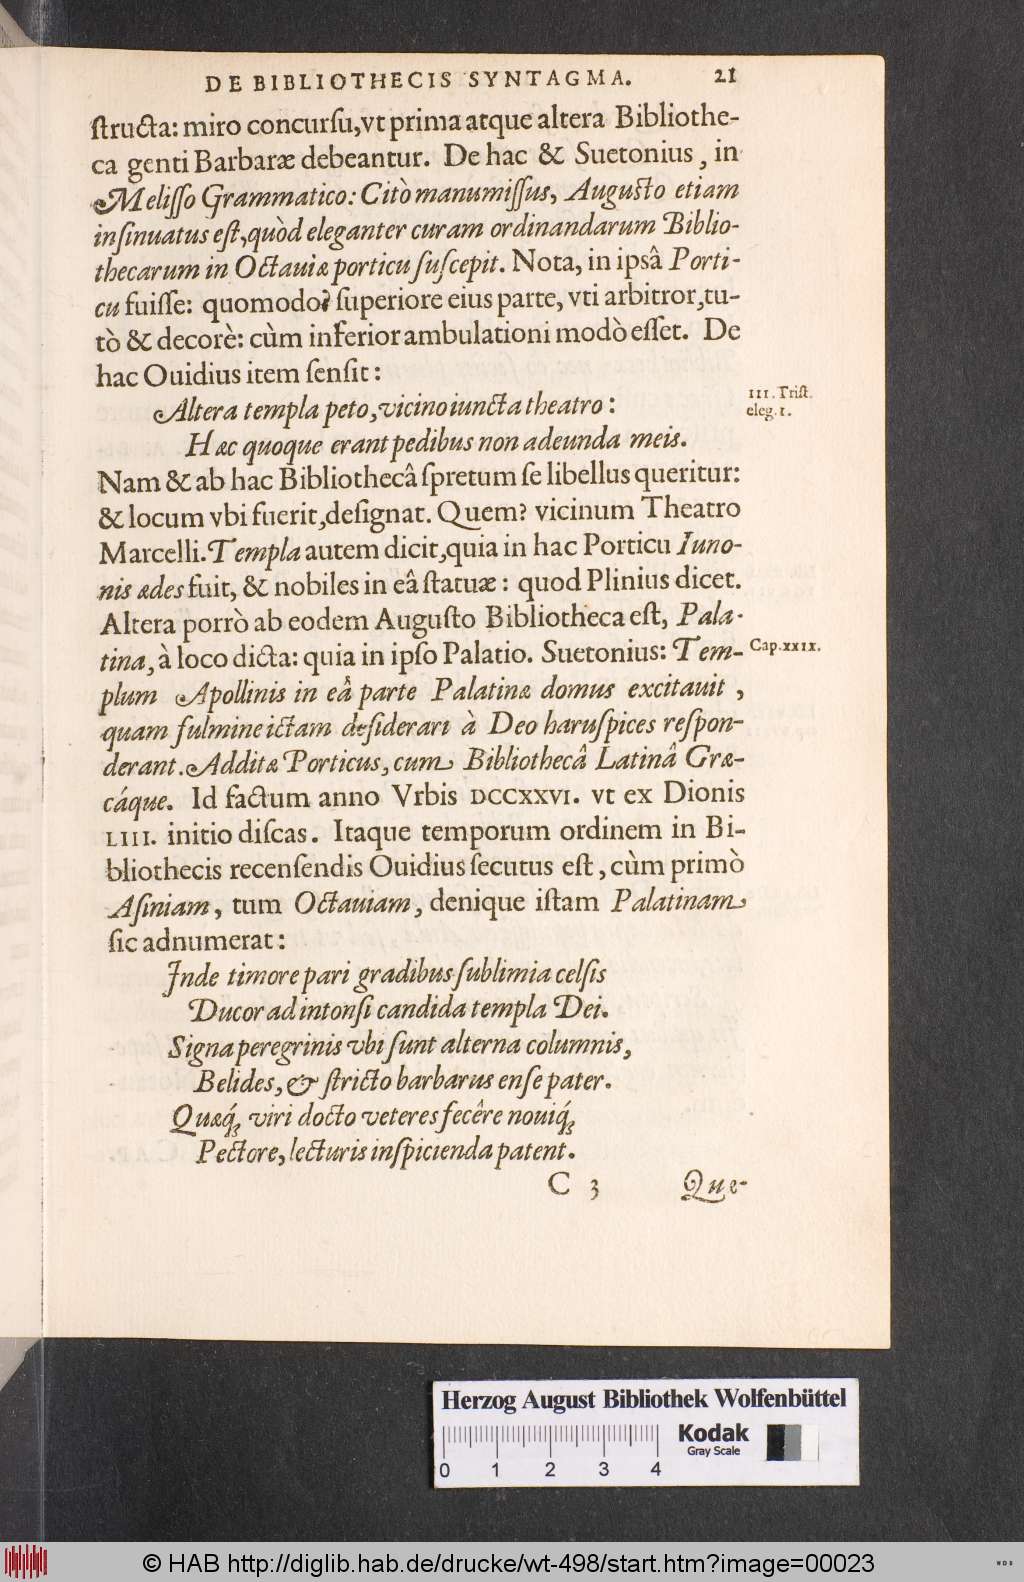 DE BIBLIOTHECIS SYNTAGMA. 21
ſtructa: miro concurſu, vt prima atque altera Bibliothe-
ca genti Barbaræ debeantur. De hac & Suetonius, in
Meliſſo Grammatico: Citò manumiſſus, Auguſto etiam
inſinuatus eſt, quòd eleganter curam ordinandarum Biblio-
thecarum in Octauiæ porticu ſuſcepit. Nota, in ipsâ Porti-
cu fuiſſe: quomodo? ſuperiore eius parte, vti arbitror, tu-
tò & decorè: cùm inferior ambulationi modò eſſet. De
hac Ouidius item ſenſit:
Altera templa peto, vicino iuncta theatro:
III. Triſt.
eleg. 1.
Hæc quoque erant pedibus non adeunda meis.
Nam & ab hac Bibliothecâ ſpretum ſe libellus queritur:
& locum vbi fuerit, deſignat. Quem? vicinum Theatro
Marcelli. Templa autem dicit, quia in hac Porticu Iuno-
nis ædes fuit, & nobiles in eâ ſtatuæ: quod Plinius dicet.
Altera porrò ab eodem Auguſto Bibliotheca eſt, Pala-
tina, à loco dicta: quia in ipſo Palatio. Suetonius: Tem-
Cap. xxix.
plum Apollinis in eâ parte Palatinæ domus excitauit,
quam fulmine ictam deſiderari à Deo haruſpices reſpon-
derant. Additæ Porticus, cum Bibliothecâ Latinâ Græ-
cáque. Id factum anno Vrbis DCCXXVI. vt ex Dionis
LIII. initio diſcas. Itaque temporum ordinem in Bi-
bliothecis recenſendis Ouidius ſecutus eſt, cùm primò
Aſiniam, tum Octauiam, denique iſtam Palatinam
ſic adnumerat:
Inde timore pari gradibus ſublimia celſis
Ducor ad intonſi candida templa Dei.
Signa peregrinis vbi ſunt alterna columnis,
Belides, & ſtricto barbarus enſe pater.
Quæq́; viri docto veteres fecêre nouiq́;
Pectore, lecturis inſpicienda patent.
C 3 Quæ-
Herzog August Bibliothek Wolfenbüttel
Kodak
Gray Scale
0 1 2 3 4
© HAB http://diglib.hab.de/drucke/wt-498/start.htm?image=00023
WDB